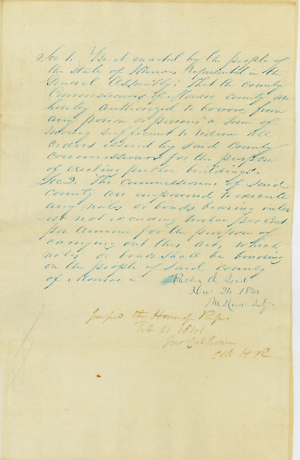 Sec 1. Be it enacted by the people of
the State of Illinois represented in the
General Assembly: That the County
Commissioners of Monroe County are
hereby authorized to borrow from
any person or persons a sum of
money sufficient to redeem all
orders issued by said County
commissioners for the purpose
of erecting public buildings.
Sec 2. The Commissioners of said
county are empowered to execute
any notes or bonds bearing inter
est not exceeding twelve per cent
per annum for the purpose of
carrying out this act, which
notes or bonds shall be binding
on the people of said county
of Monroe
Passed the House of Reps
Feb 11, 1841
Jno Calhoun
Clk H R